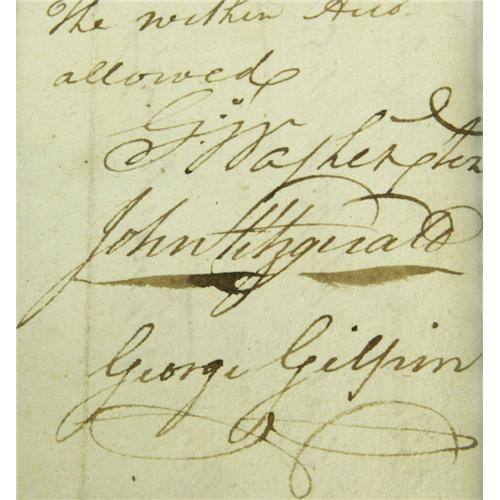 The within Acco.
allowed
G:Washington
John Fitzgerald
George Gilpin